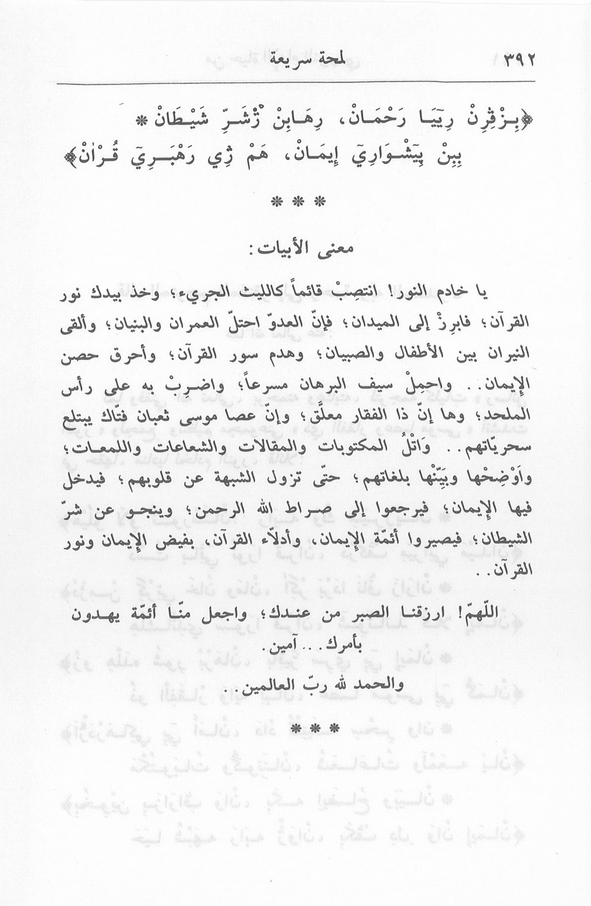 ٣٩٢
لمحة سريعة
﴿بِـزْڤِرِنْ رِيٓيَا رَحْمَـانْ، رِهَـابِنْ ژْشَـرِّ شَيْـطَانْ *
بِبِنْ پِيٓشْـوَارِيٓ إِيمَـانْ، هَمْ ژِي رَهْبَـرِيٓ قُـرْاٰنْ﴾
* * *
معنى الأبيات:
يا خادم النور! انتصِبْ قائماً كالليث الجريء؛ وخذ بيدك نور
القرآن؛ فابرِزْ إلى الميدان؛ فإنّ العدوّ احتلّ العمران والبنيان؛ وألقى
النيران بين الأطفال والصبيان؛ وهدم سور القرآن؛ وأحرق حصن
الإيمان.. واحمِلْ سيف البرهان مسرعاً؛ واضرِبْ به على رأس
الملحد؛ وها إنّ ذا الفقار معلَّق؛ وإنّ عصا موسى ثعبان فتّاك يبتلع
سحريّاتهم.. وَاتْلُ المكتوبات والمقالات والشعاعات واللمعات؛
واَوْضِحْها وبَيِّنْها بلغاتهم؛ حتّى تزول الشبهة عن قلوبهم؛ فيدخل
فيها الإيمان؛ فيرجعوا إلى صراط الله الرحمن؛ وينجو عن شرّ
الشيطان؛ فيصيروا أئمّة الإيمان، وأدلّاء القرآن، بفيض الإيمان ونور
القرآن..
اللّهمّ! ارزقنا الصبر من عندك؛ واجعل منّا أئمّة يهدون
بأمرك... آمين.
والحمد لله ربّ العالمين..
* * *